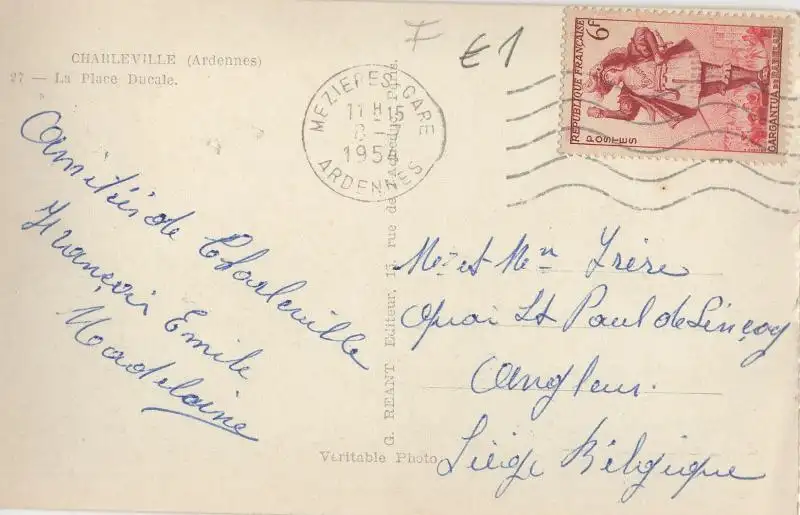 CHARLEVILLE (Ardennes)
27 — La Place Ducale.
Amitiés de Charleville
François Emile
Madelaine
F
£1
MEZIERES GARE
11H15
8 -
1954
ARDENNES
REPUBLIQUE FRANÇAISE
6F
POSTES
GARGANTUA DE RABELAIS
G. REANT Editeur, 15, rue de l'Aqueduc, Paris.
Véritable Photo
Mr et Mme Frère
Quai St Paul de Sinçay
Angleur.
Liège Bélgique